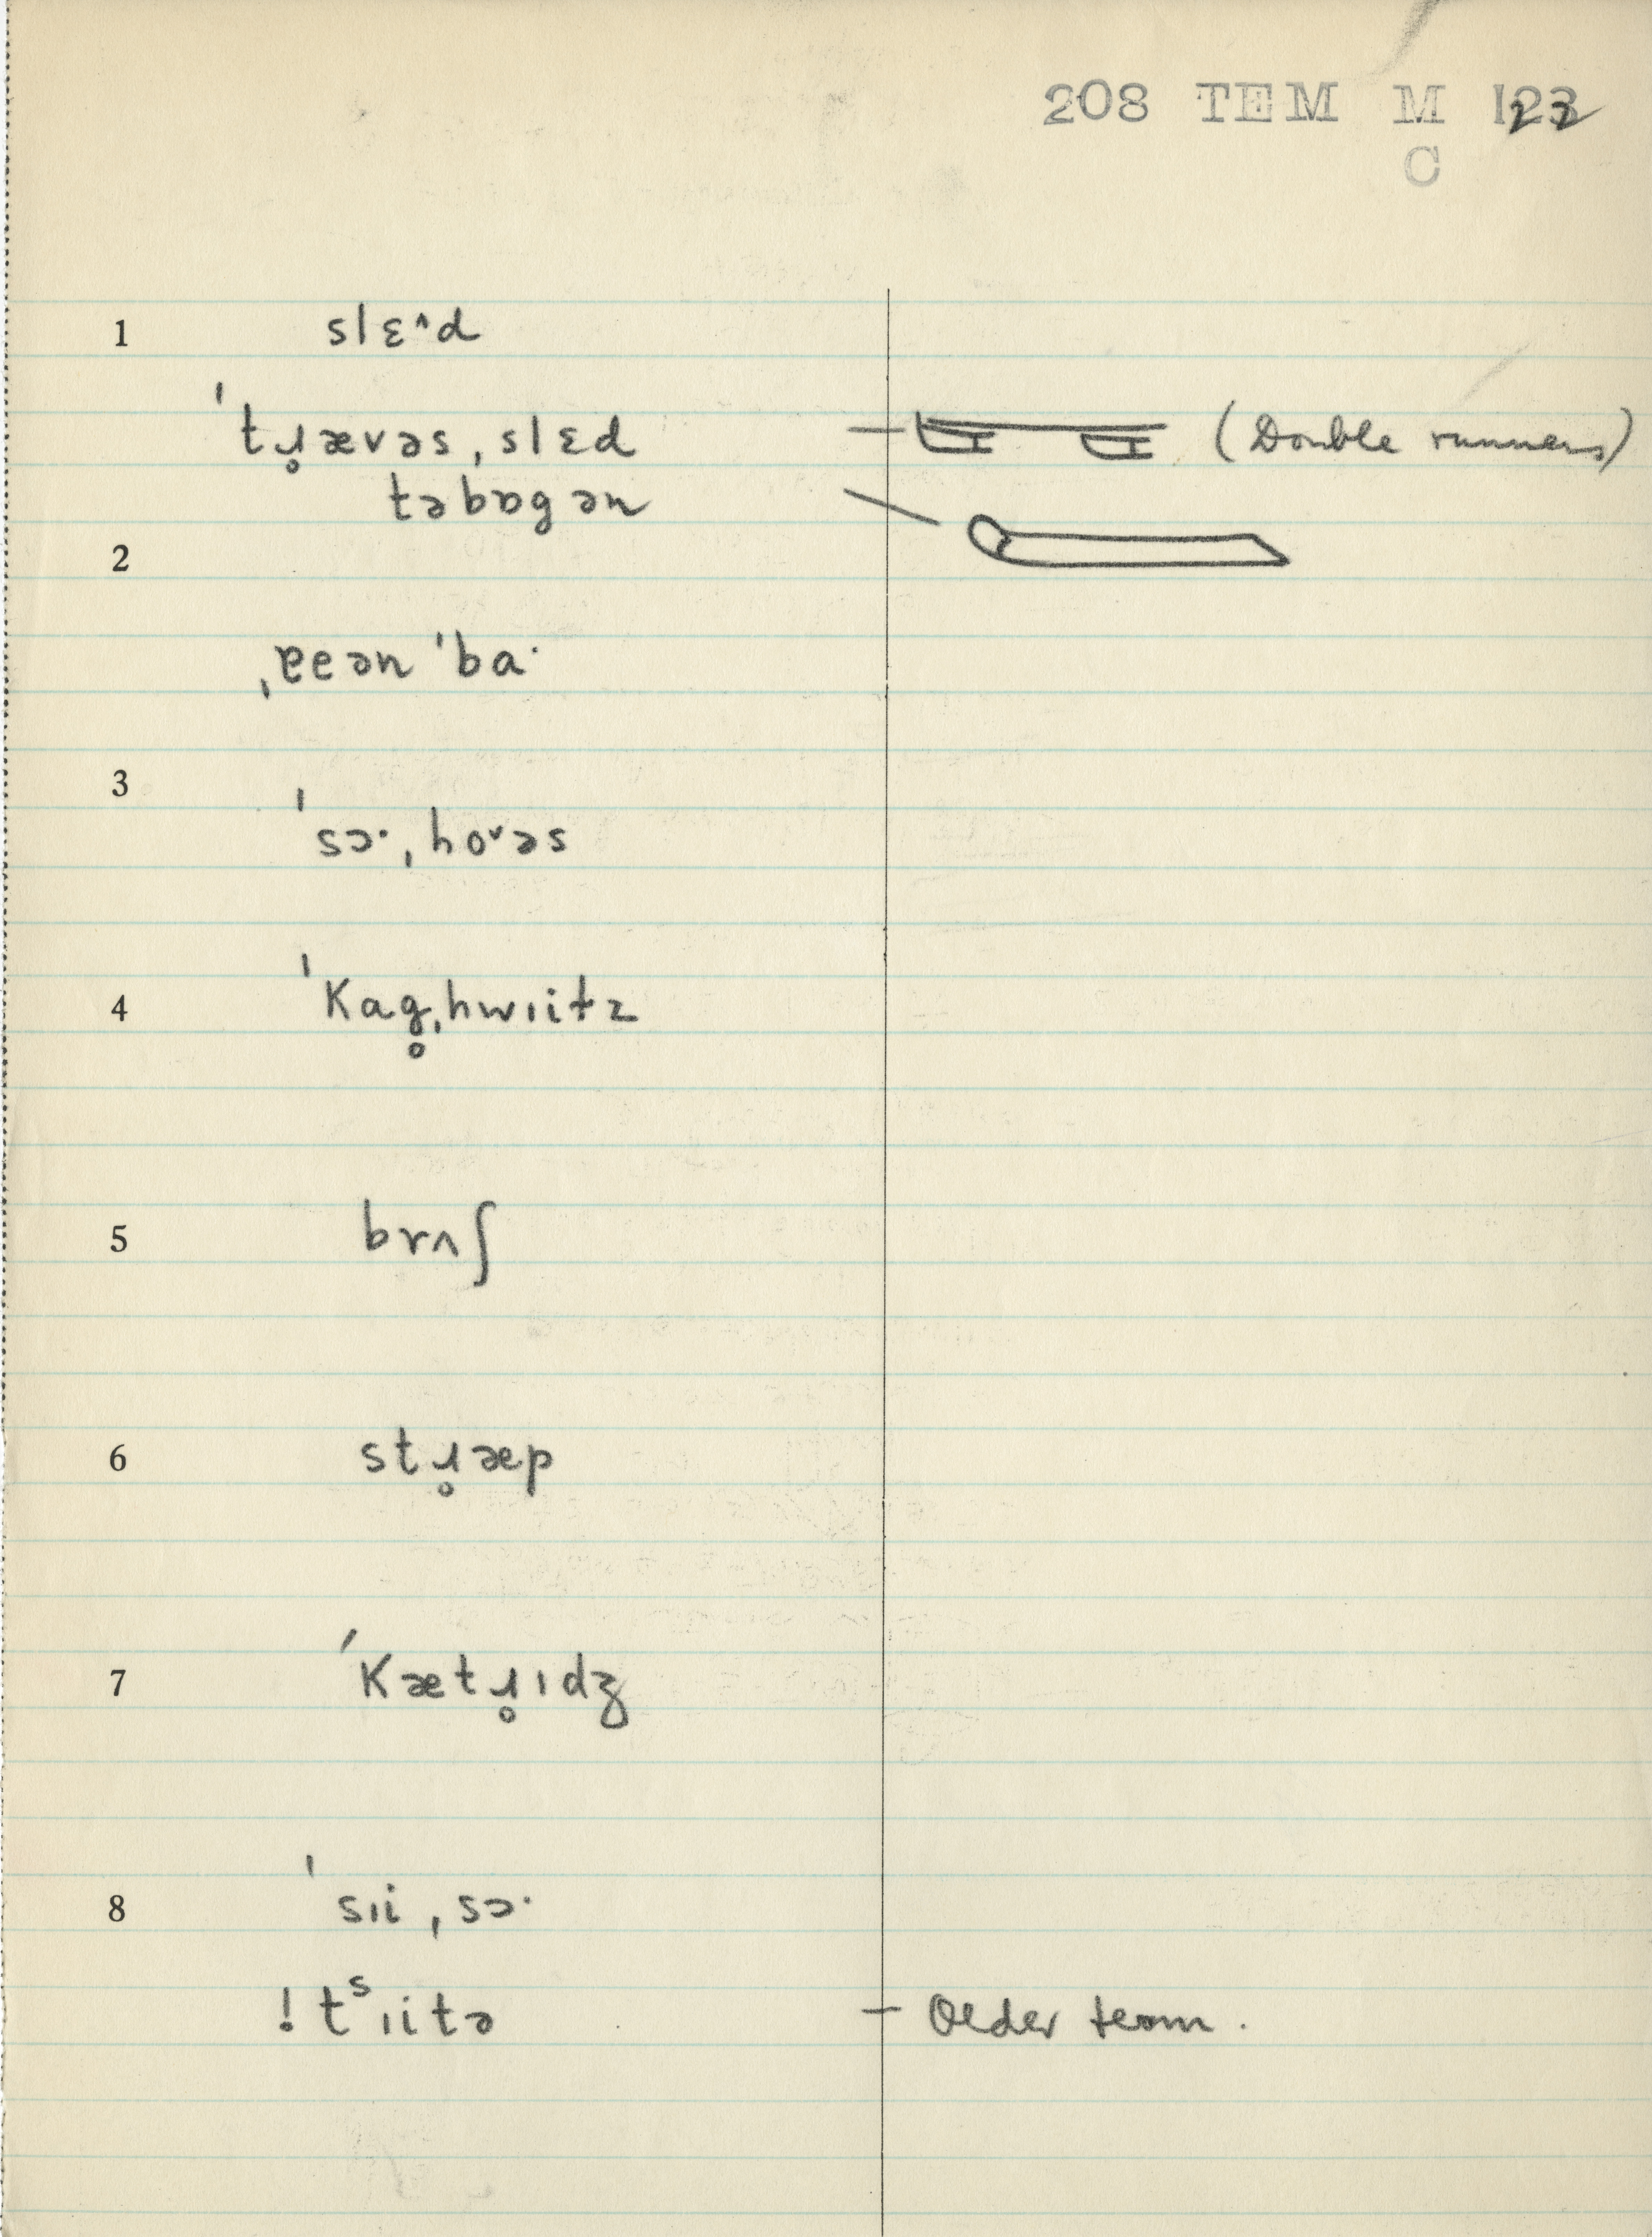 208 TEM M 122
C
1 slɛ^d
ˈtɹ̥ævəsˌslɛd — (Double runners)
təbɒgən —
2
ˌɐeənˈba·
3
ˈsɔ·ˌhoᵛəs
4 ˈKag̥ˌhwɪitz
5 brʌʃ
6 stɹ̥æp
7 ˈKætɹ̥ɪdʒ
8 ˈsɪiˌsɔ·
! tˢɪitə — Older term.